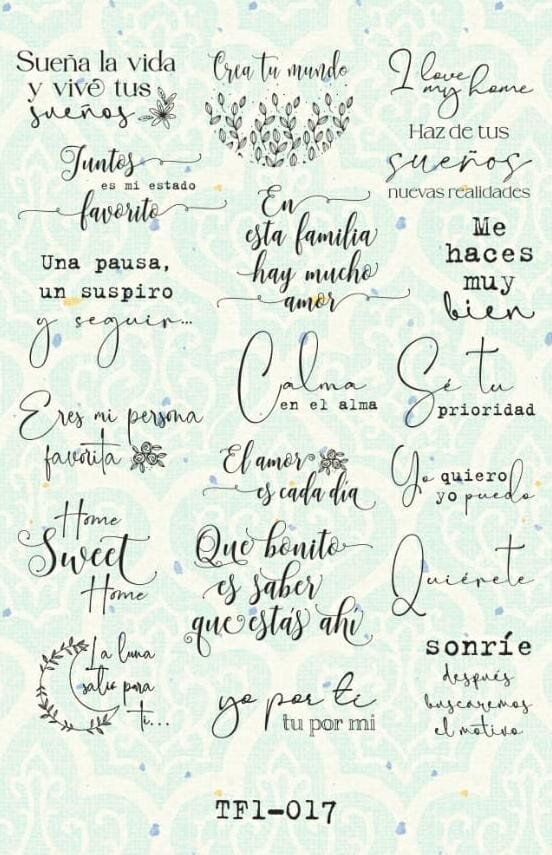 Sueña la vida
y vive tus
sueños
Crea tu mundo
I love
my home
Juntos
es mi estado
favorito
Haz de tus
sueños
nuevas realidades
En
esta familia
hay mucho
amor
Me
haces
muy
bien
Una pausa,
un suspiro
y seguir...
Calma
en el alma
Sé tu
prioridad
Eres mi persona
favorita
El amor
es cada día
Yo quiero
yo puedo
Home
Sweet
Home
Que bonito
es saber
que estás ahí
Quiérete
La luna
salio para
ti...
yo por ti
tu por mi
sonríe
después
buscaremos
el motivo
TF1-017